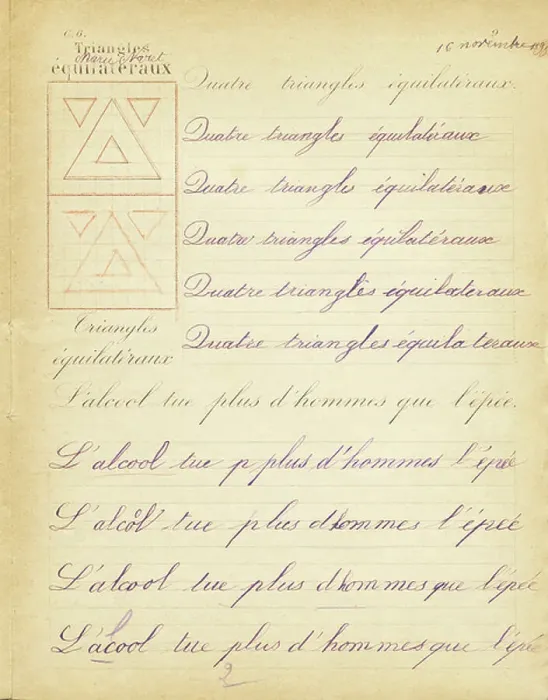 C. G.
16 novembre
Triangles
équilatéraux
Quatre triangles équilatéraux.
Quatre triangles équilatéraux
Quatre triangles équilatéraux
Quatre triangles équilatéraux
Quatre triangles équilateraux
Quatre triangles équila teraux
Triangles
équilatéraux
L'alcool tue plus d'hommes que l'épée.
L'alcool tue p plus d'hommes l'épée
L'alcool tue plus dhommes l'épée
L'alcool tue plus dhommes que l'épée
L'alcool tue plus d'hommes que l'épée
2